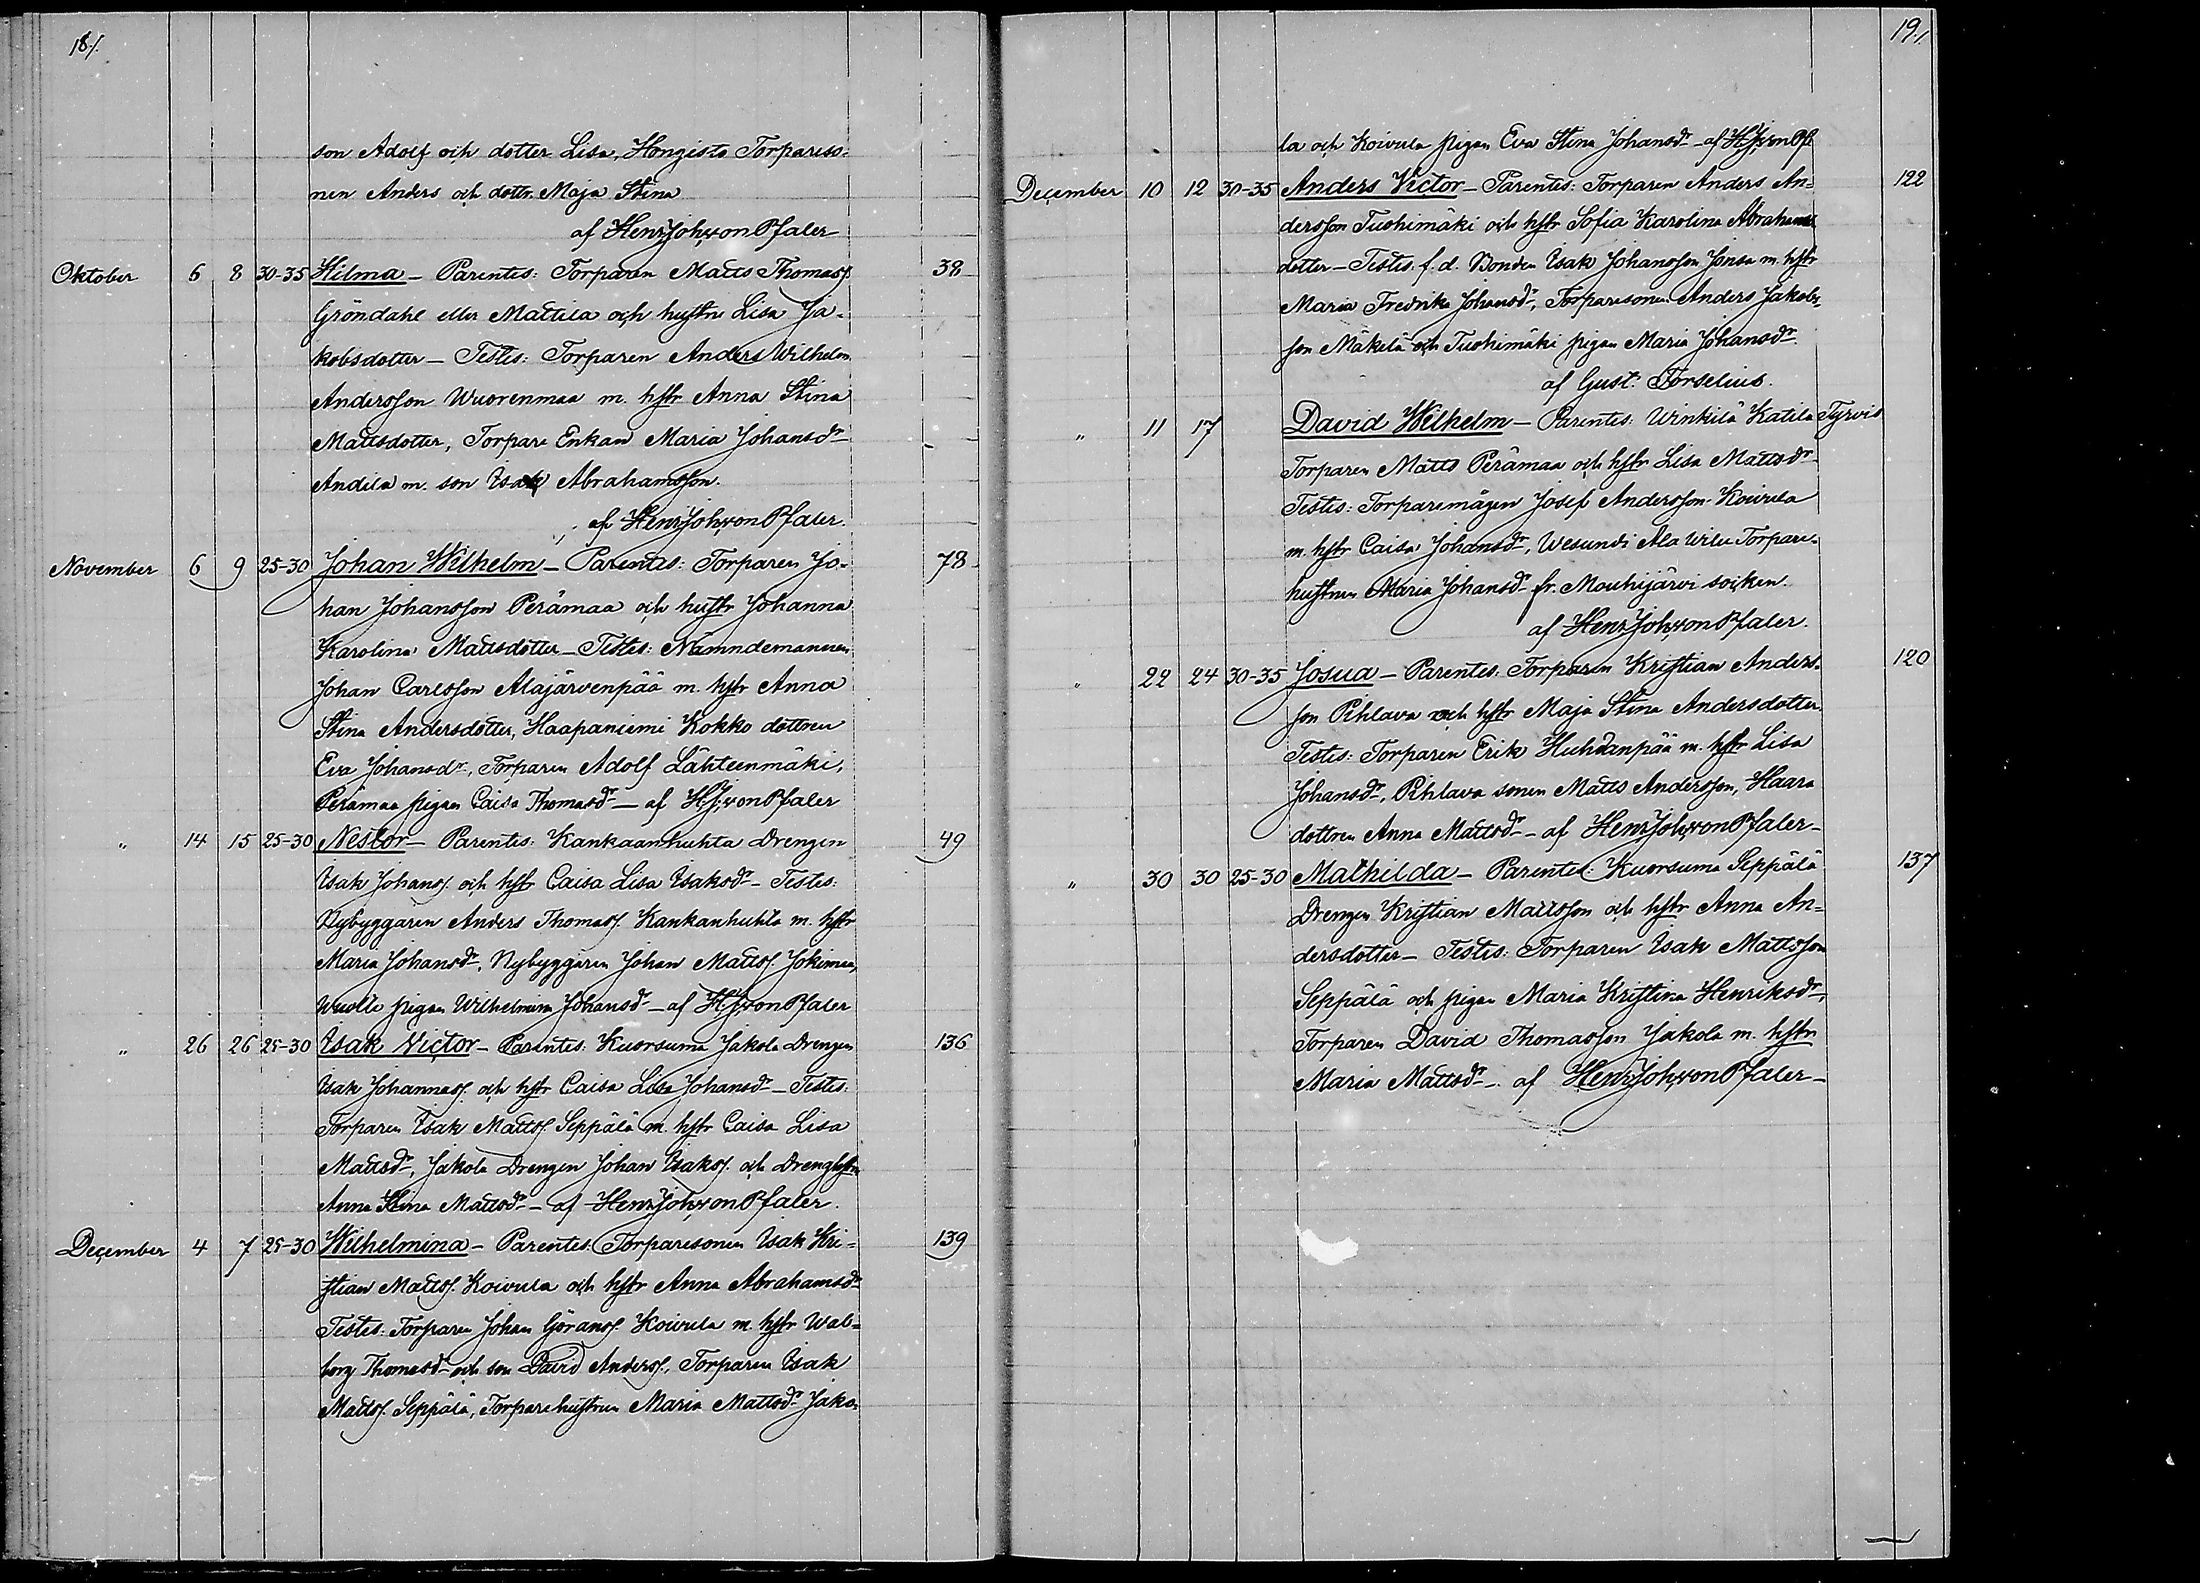 18/.
son Adolf och dotter Lisa, Hongisto Torpareso-
nen Anders och dottn. Maja Stina
af Henr. Joh. von Pfaler
Oktober 6 8 30-35 Hilma - Parentes: Torparen Matts Thomass. 38
Gröndahl eller Mattila och hustru Lisa Ja-
kobsdotter - Testes: Torparen Anders Wilhelm
Andersson Wuorenmaa m. hstr Anna Stina
Mattsdotter, Torpare Enkan Maria Johansdr
Andila m. son Isak Abrahamsson.
af Henr. Joh. von Pfaler.
November 6 9 25-30 Johan Wilhelm - Parentes: Torparen Jo- 78
han Johansson Perämaa och hustr Johanna
Karolina Mattsdotter - Testes: Nämndemannen
Johan Carlsson Alajärvenpää m. hstr Anna
Stina Andersdotter, Haapaniemi Kokko dottren
Eva Johansdr, Torparen Adolf Lähteenmäki,
Perämaa pigan Caisa Thomasdr - af H. J. von Pfaler
" 14 15 25-30 Nestor - Parentes: Kankaanhuhta Drengen 49
Isak Johanss. och hstr Caisa Lisa Isaksdr - Testes:
Nybyggaren Anders Thomass. Kankanhuhta m. hstr
Maria Johansdr, Nybyggaren Johan Mattss. Jokimaa,
Wuolle pigan Wilhelmina Johansdr - af H. J. von Pfaler
" 26 26 25-30 Isak Victor - Parentes: Kuorsuma Jakola Drengen 136
Isak Johannass. och hstr Caisa Lisa Johansdr - Testes:
Torparen Isak Mattss. Seppälä m. hstr Caisa Lisa
Mattsdr, Jakola Drengen Johan Isakss. och Drenghstrn
Anna Stina Mattsdr - af Henr. Joh. von Pfaler.
December 4 7 25-30 Wilhelmina - Parentes: Torparesonen Isak Kri- 139
stian Mattss. Koivula och hstr Anna Abrahamsdr
Testes: Torparen Johan Görans. Koivula m. hstr Wal-
borg Thomasdr och son David Anderss., Torparen Isak
Mattss. Seppälä, Torparehustrun Maria Mattsdr Jako-
19./
la och Koivula pigan Eva Stina Johansdr - af H. J. von Pfl
December 10 12 30-35 Anders Victor - Parentes: Torparen Anders An- 122
dersson Tuohimäki och hstr Sofia Karolina Abrahams
dotter - Testes: f. d. Bonden Isak Johansson Jonsa m. hstr
Maria Fredrika Johansdr, Torparesonen Anders Jakobs-
son Mäkelä och Tuohimäki pigan Maria Johansdr
af Gust. Forselius.
" 11 17 David Wilhelm - Parentes: Winkilä Katila Tyrvis
Torparen Matts Perämaa och hstr Lisa Mattsdr -
Testes: Torparemågen Josef Andersson Koivula
m. hstr Caisa Johansdr, Wesundi Ala Wilu Torpare-
hustrun Maria Johansdr fr. Mouhijärvi socken.
af Henr. Joh. von Pfaler.
" 22 24 30-35 Josua - Parentes: Torparen Kristian Anders- 120
son Pihlava och hstr Maja Stina Andersdotter
Testes: Torparen Erik Huhdanpää m. hstr Lisa
Johansdr, Pihlava sonen Matts Andersson, Haara
dottren Anna Mattsdr - af Henr. Joh. von Pfaler -
" 30 30 25-30 Mathilda - Parentes: Kuorsuma Seppälä 137
Drengen Kristian Mattsson och hstr Anna An-
dersdotter - Testes: Torparen Isak Mattsson
Seppälä och pigan Maria Kristina Henriksdr,
Torparen David Thomasson Jakola m. hstr
Maria Mattsdr - af Henr. Joh. von Pfaler -